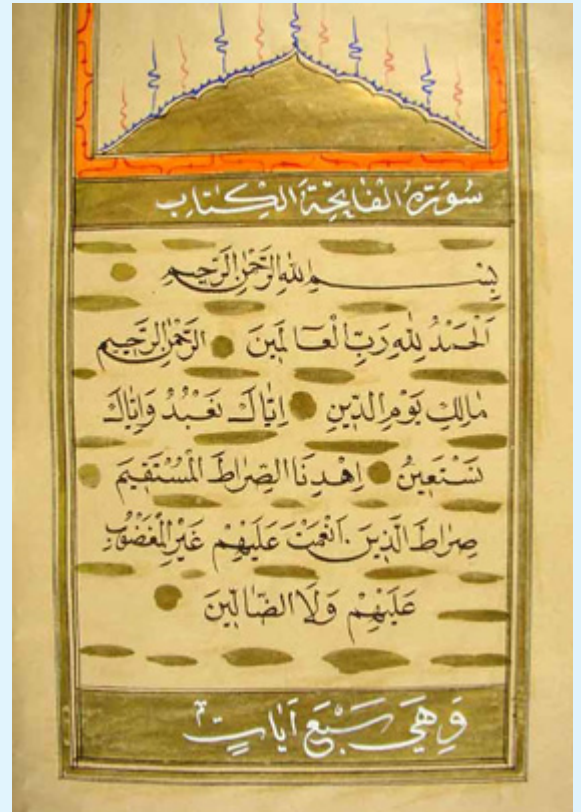 سُورَةُ الْفَاتِحَةِ الْكِتَابِ
بِسْمِ اللهِ الرَّحْمٰنِ الرَّحِيمِ
اَلْحَمْدُ لِلّٰهِ رَبِّ الْعَالَمِينَ الرَّحْمٰنِ الرَّحِيمِ
مَالِكِ يَوْمِ الدِّينِ اِيَّاكَ نَعْبُدُ وَاِيَّاكَ
نَسْتَعِينُ اِهْدِنَا الصِّرَاطَ الْمُسْتَقِيمَ
صِرَاطَ الَّذِينَ اَنْعَمْتَ عَلَيْهِمْ غَيْرِ الْمَغْضُوبِ
عَلَيْهِمْ وَلَا الضَّالِّينَ
وَهِيَ سَبْعَ اَيَاتٍ